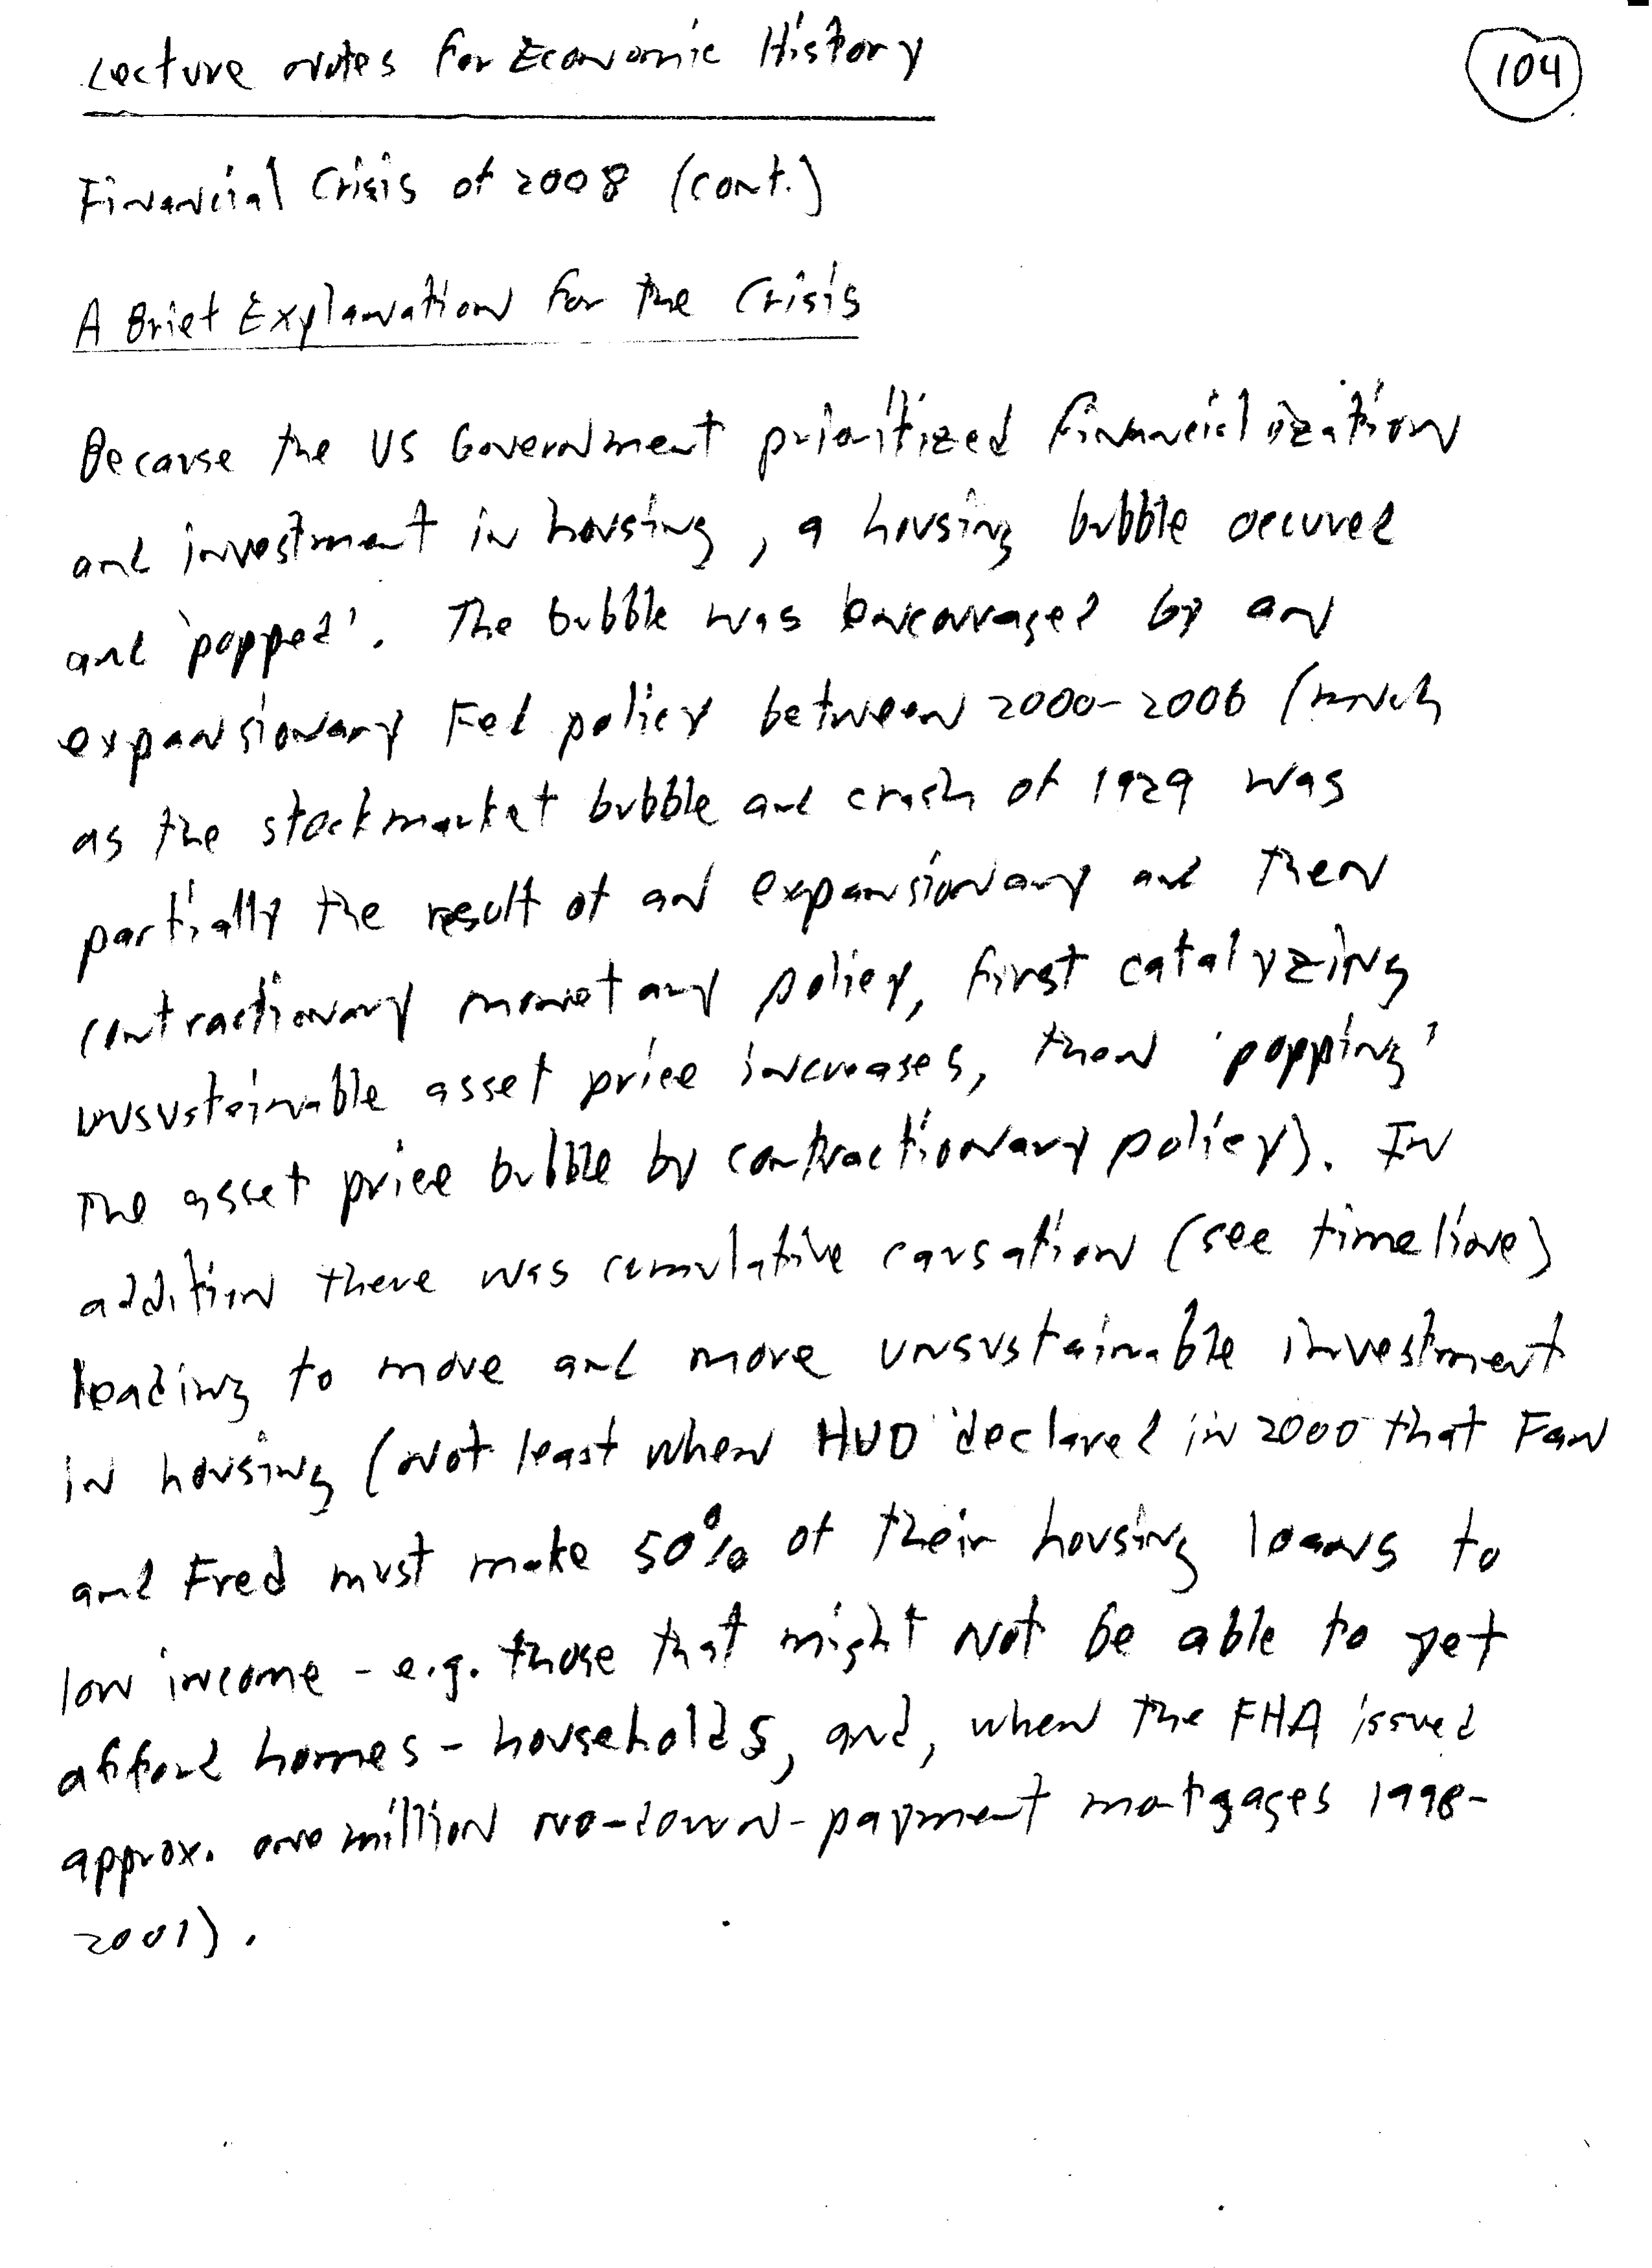 Lecture Notes for Economic History
104
Financial Crisis of 2008 (cont.)
A Brief Explanation for the Crisis
Because the US Government prioritized financialization
and investment in housing, a housing bubble occured
and 'popped'. The bubble was encouraged by an
expansionary Fed policy between 2000-2006 (much
as the stockmarket bubble and crash of 1929 was
partially the result of an expansionary and then
contractionary monetary policy, first catalyzing
unsustainable asset price increases, then 'popping'
the asset price bubble by contractionary policy). In
addition there was cumulative causation (see timeline)
leading to more and more unsustainable investment
in housing (not least when HUD declared in 2000 that Fan
and Fred must make 50% of their housing loans to
low income - e.g. those that might not be able to yet
afford homes - households, and, when the FHA issued
approx. one million no-down-payment mortgages 1998-
2001).